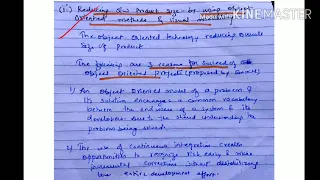 (ii) Reducing Product Size by using Object
Oriented methods & visual
The object Oriented technology reducing overall
Size of product
The following are 3 reasons for success of
Object Oriented Projects (proposed by Booch)
1) An object Oriented model of a problem &
its solution encourages a common vocabulary
between the end users of a system & its
developers the shared understanding the
problem being solved
2) The use of Continuous integration creates
opportunities to recognize risk early & make
incremental corrections without destabilizing
the entire development effort
Made With VivaVideo